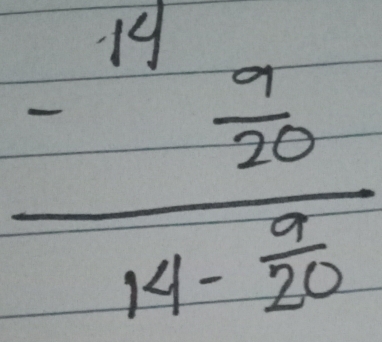 14
- 9/20
14 - 9/20